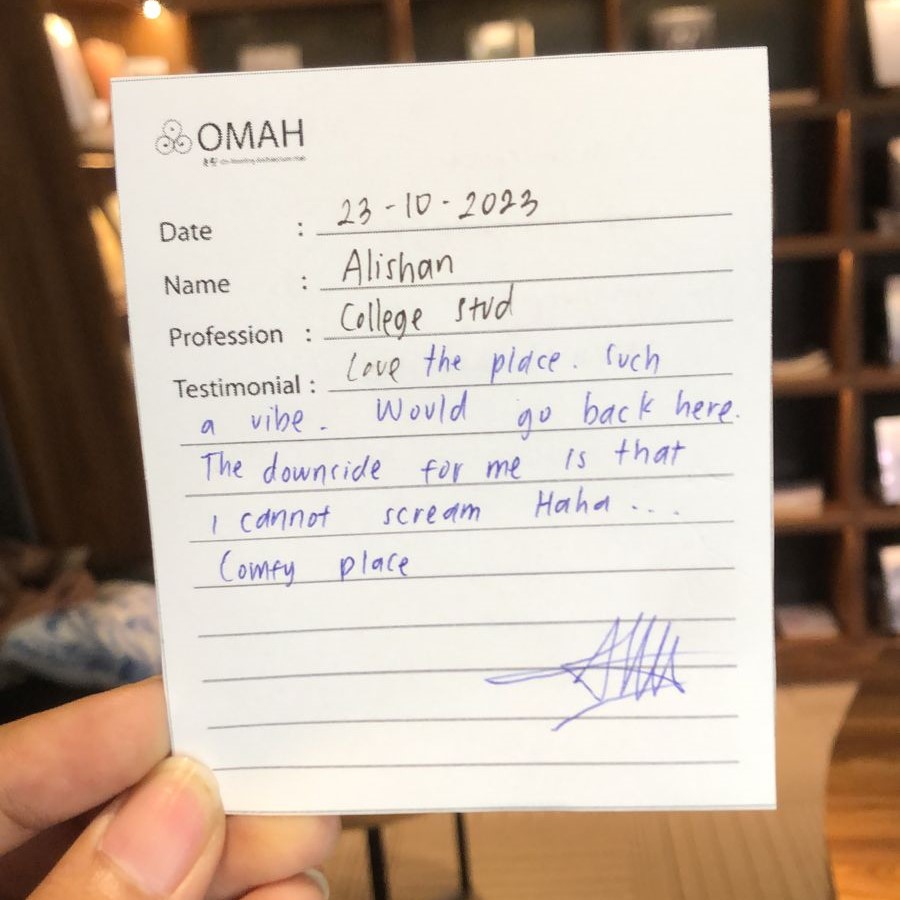 OMAH
Date : 23-10-2023
Name : Alishan
Profession : College stud
Testimonial : Love the place. Such
a vibe. Would go back here.
The downside for me is that
I cannot scream Haha ...
Comfy place